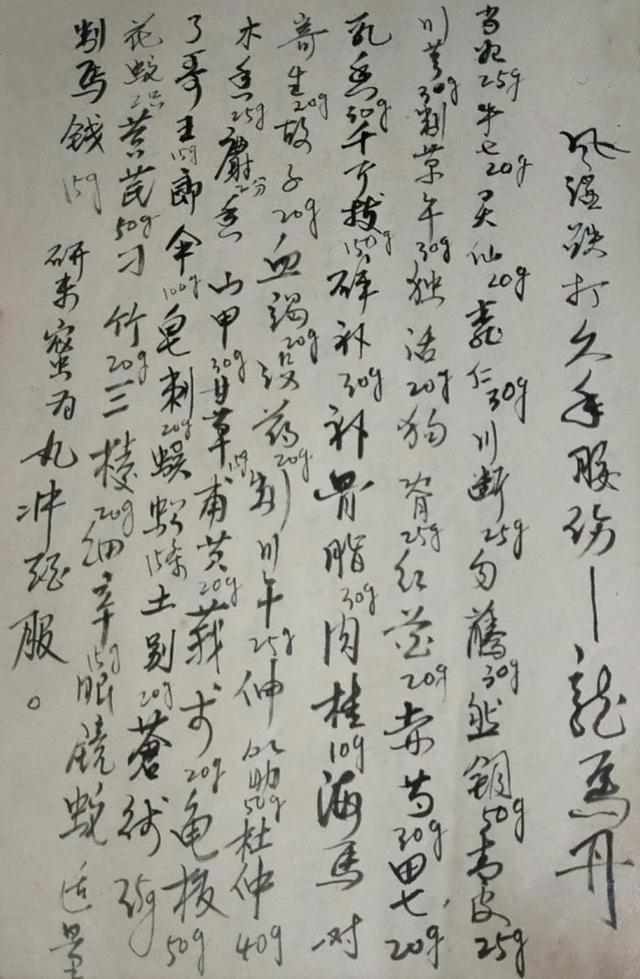 风湿跌打久年腰伤—龍馬丹
当归25g牛七20g灵仙20g意仁30g川断25g勾藤30g然铜50g青皮25g
川芎30g制草午30g独活20g狗脊25g红花20g赤芍30g田七20g
乳香50g千斤拔150g碎补30g补骨脂30g肉桂10g海馬一对
寄生20g故子20g血竭20g没药20g制川午25g伸筋50g杜仲40g
木香25g麝香2分山甲30g甘草15g蒲黄20g莪术20g龟板50g
了哥王15g郎伞100g皂刺20g蜈蚣15条土别20g蒼術25g
花蛇2只黄芪50g刁竹20g三棱20g细辛15g眼镜蛇适量
制馬钱15g
研末蜜为丸冲酒服。